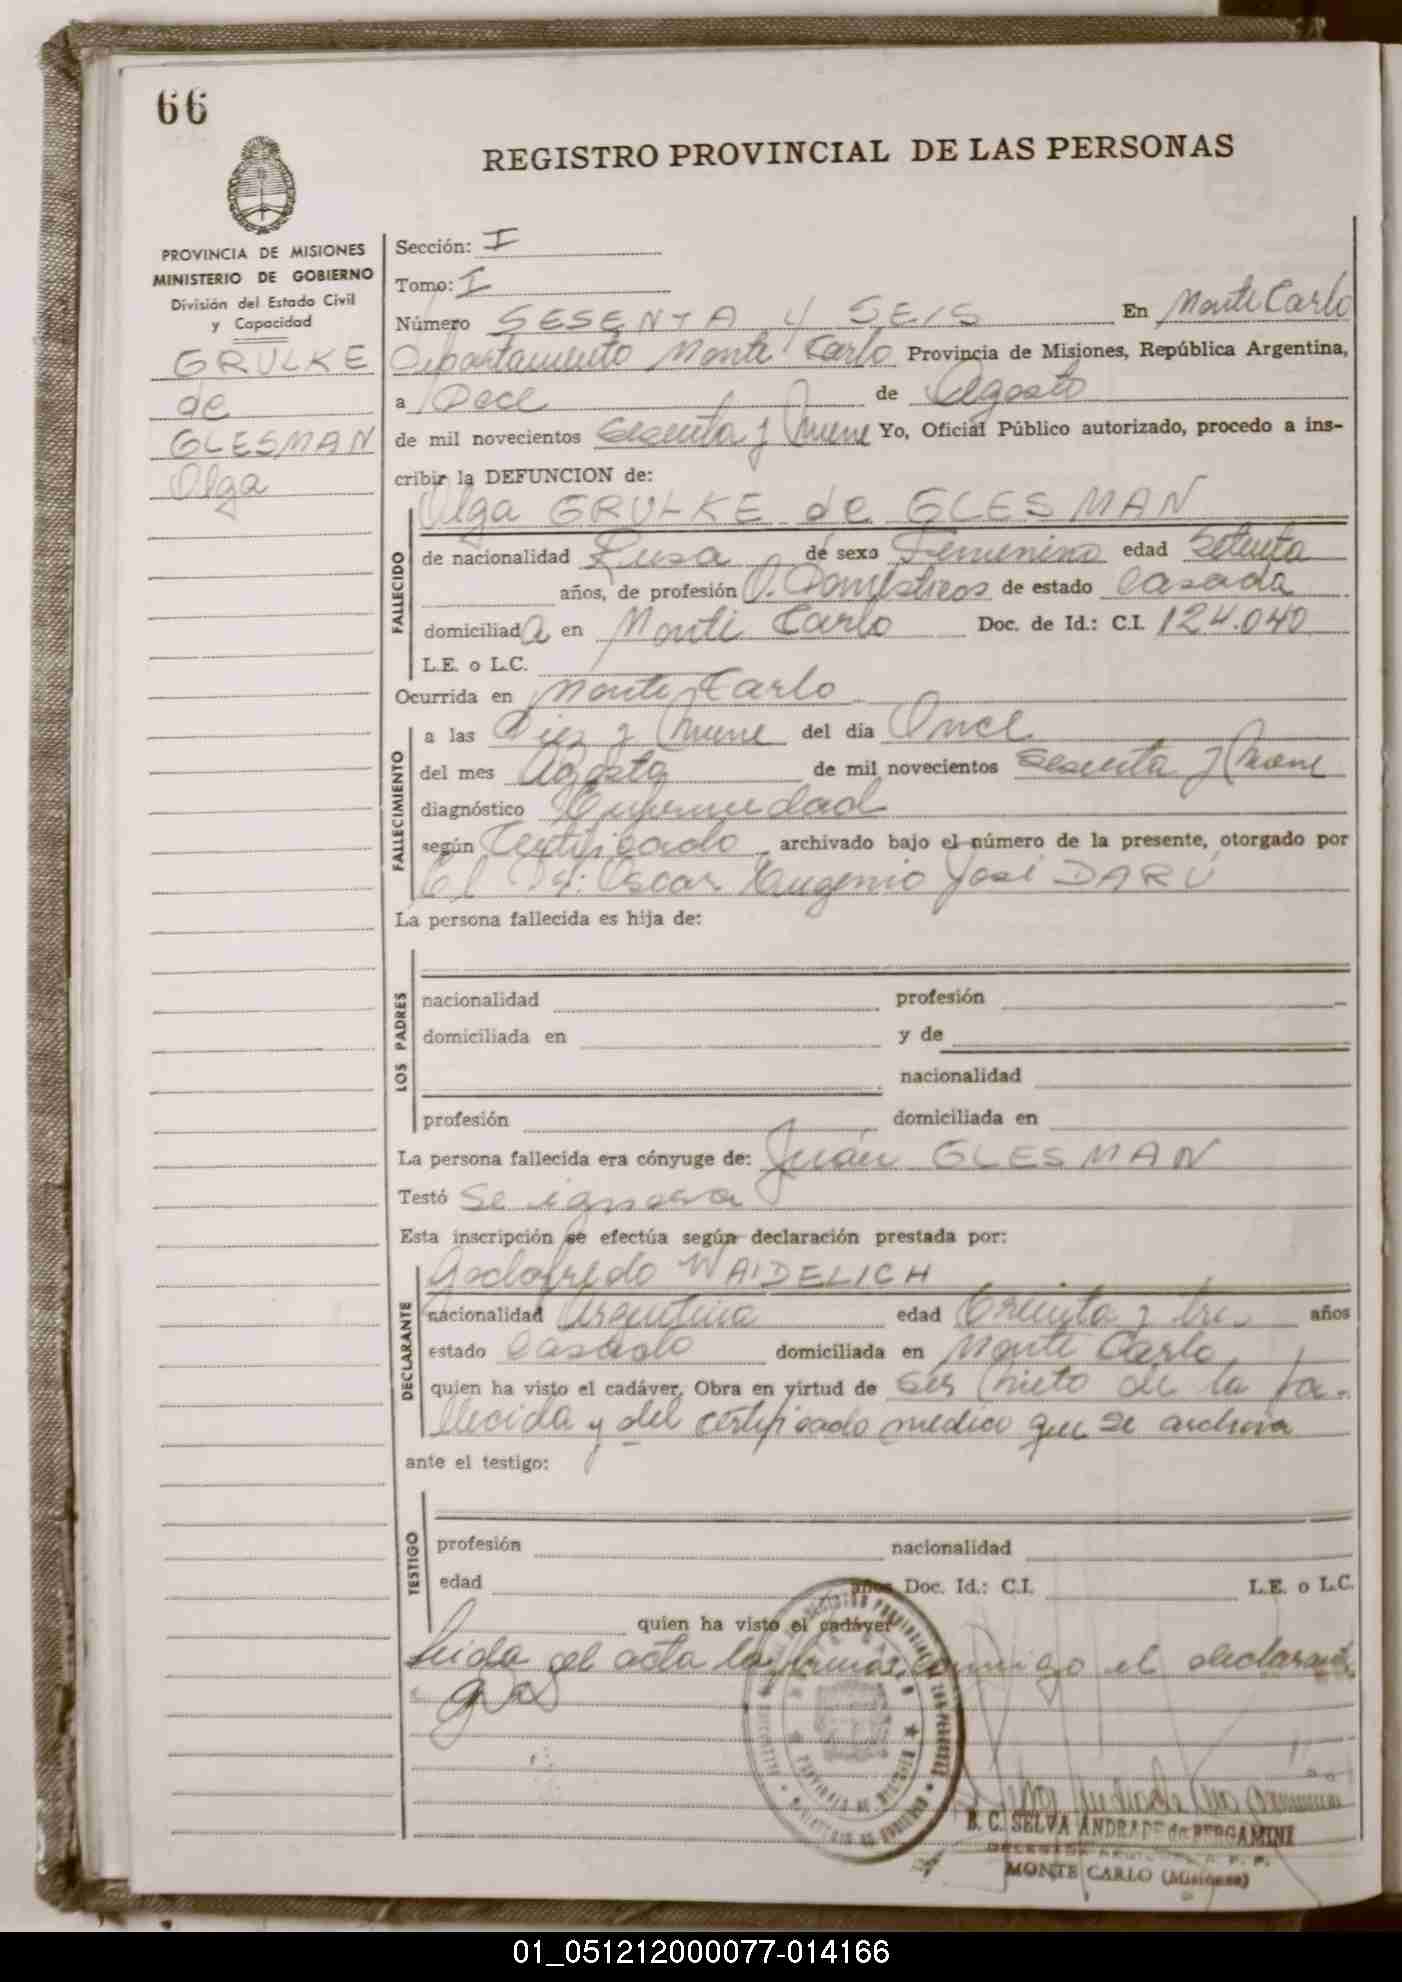 66
REGISTRO PROVINCIAL DE LAS PERSONAS
PROVINCIA DE MISIONES
MINISTERIO DE GOBIERNO
División del Estado Civil
y Capacidad
GRULKE
de
GLESMAN
Olga
Sección: I
Tomo: I
Número SESENTA y SEIS En Monte Carlo
Departamento Monte Carlo Provincia de Misiones, República Argentina,
a Doce de Agosto
de mil novecientos sesenta y nueve Yo, Oficial Público autorizado, procedo a ins-
cribir la DEFUNCION de:
Olga GRULKE de GLESMAN
FALLECIDO
de nacionalidad Rusa de sexo Femenino edad Setenta
años, de profesión Q. Domésticos de estado Casada
domiciliada en Monte Carlo Doc. de Id.: C.I. 124.040
L.E. o L.C.
Ocurrida en Monte Carlo
FALLECIMIENTO
a las Diez y Nueve del día Once
del mes Agosto de mil novecientos sesenta y Nueve
diagnóstico Enfermedad
según Certificado archivado bajo el número de la presente, otorgado por
El Dr. Oscar Eugenio José DARÚ
La persona fallecida es hija de:
LOS PADRES
nacionalidad profesión
domiciliada en y de
nacionalidad
profesión domiciliada en
La persona fallecida era cónyuge de: Juán GLESMAN
Testó se ignora
Esta inscripción se efectúa según declaración prestada por:
DECLARANTE
Godofredo WAIDELICH
nacionalidad Argentina edad Treinta y tres años
estado Casado domiciliada en Monte Carlo
quien ha visto el cadáver. Obra en virtud de ser nieto de la fa-
llecida y del certificado médico que se archiva
ante el testigo:
TESTIGO
profesión nacionalidad
edad años Doc. Id.: C.I. L.E. o L.C.
quien ha visto el cadáver
Leida el acta la firma conmigo el declarante
REGISTRO PROVINCIAL DE LAS PERSONAS
PROVINCIA DE MISIONES
MINISTERIO DE GOBIERNO
B. C. SELVA ANDRADE de BERGAMINI
MONTE CARLO (Misiones)
01_051212000077-014166